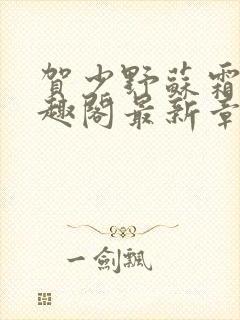 賀少野蘇霜
趣閣最新章
一劍飄